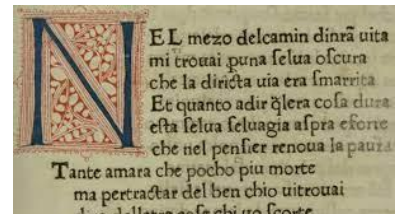 NEL mezo delcamin dinrã uita
mi trouai ꝑuna ſelua oſcura
che la diricta uia era ſmarrita
Et quanto adir q̃lera coſa dura
eſta ſelua ſeluagia aſpra eforte
che nel penſier renoua la paura
Tante amara che pocho piu morte
ma pertractar del ben chio uitrouai